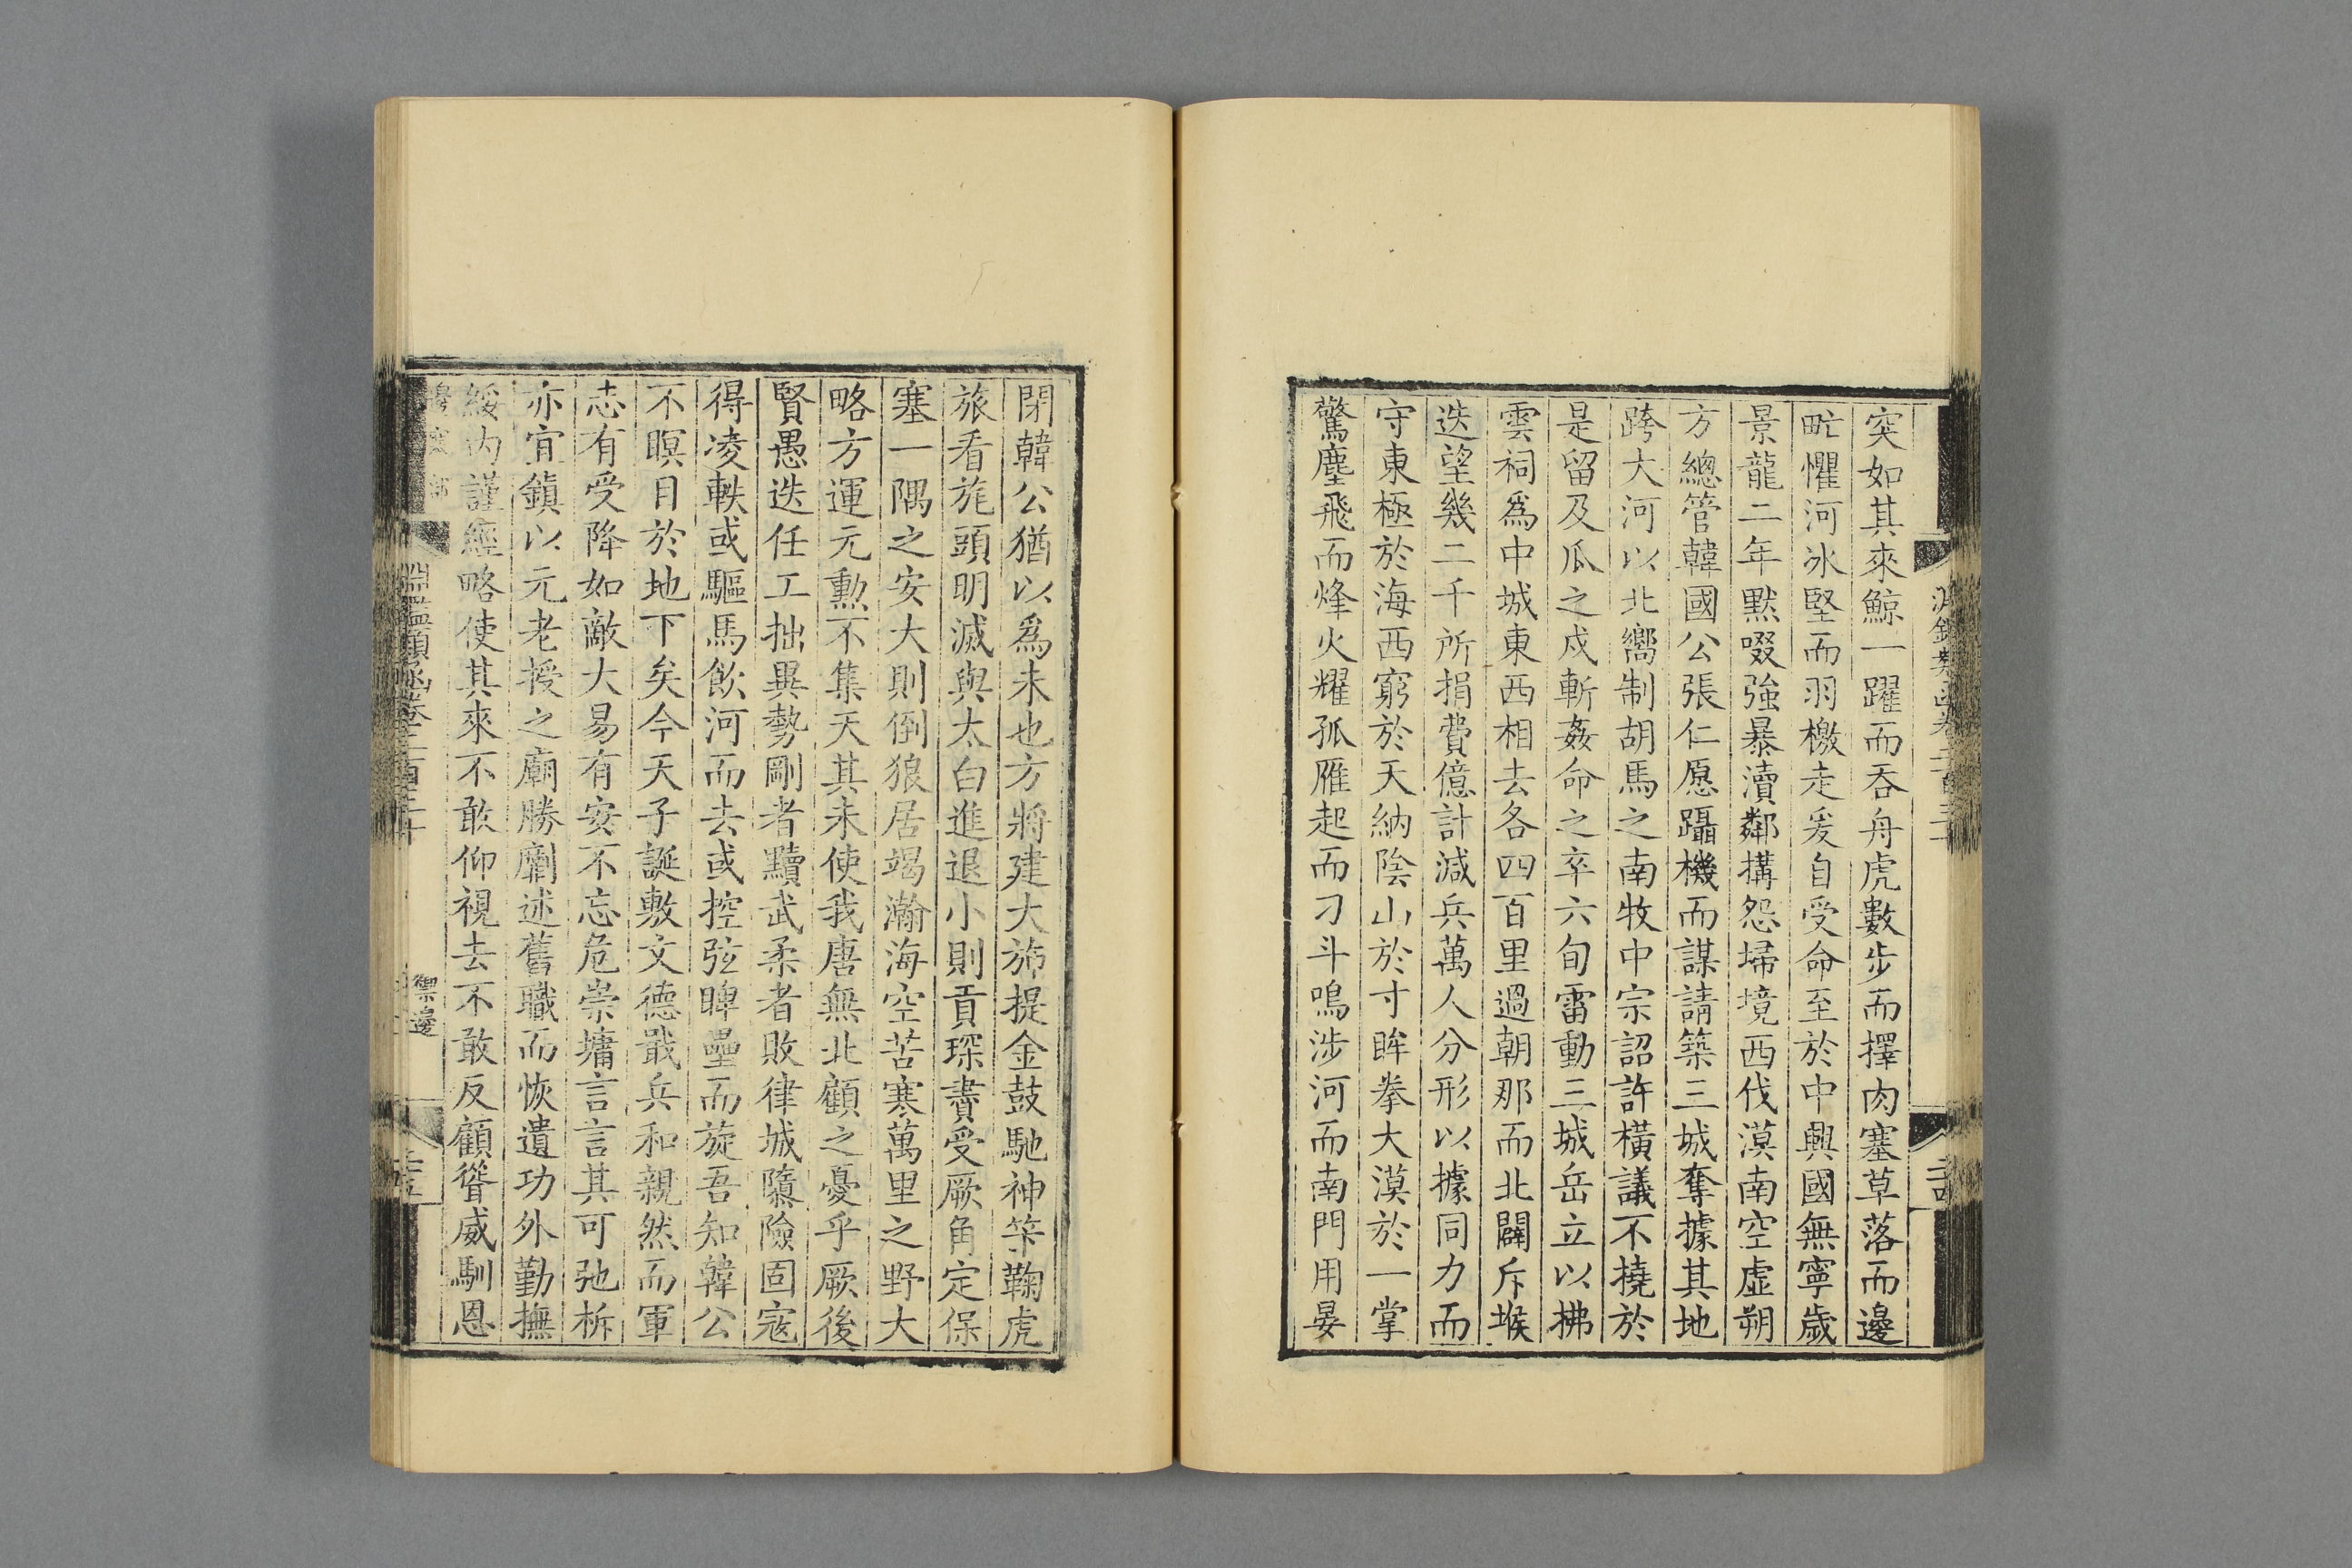 突如其來鯨一躍而吞舟虎數步而擇肉塞草落而邊
甿懼河冰堅而羽檄走爰自受命至於中興國無寧歲
景龍二年默啜強暴瀆鄰搆怨埽境西伐漠南空虛朔
方總管韓國公張仁愿躡機而謀請築三城奪據其地
跨大河以北嚮制胡馬之南牧中宗詔許橫議不撓於
是留及瓜之戍斬姦命之卒六旬雷動三城岳立以拂
雲祠爲中城東西相去各四百里過朝那而北闢斥堠
迭望幾二千所捐費億計減兵萬人分形以據同力而
守東極於海西窮於天納陰山於寸眸拳大漠於一掌
驚塵飛而烽火耀孤雁起而刁斗鳴涉河而南門用晏
閉韓公猶以爲未也方將建大斾提金鼓馳神筞鞠虎
旅看旄頭明滅與太白進退小則貢琛賮受厥角定保
塞一隅之安大則倒狼居竭瀚海空苦寒萬里之野大
略方運元勳不集天其未使我唐無北顧之憂乎厥後
賢愚迭任工拙異勢剛者黷武柔者敗律城隳險固寇
得凌軼或驅馬飲河而去或控弦睥壘而旋吾知韓公
不瞑目於地下矣今天子誕敷文德戢兵和親然而軍
志有受降如敵大易有安不忘危崇墉言言其可弛柝
亦宜鎮以元老授之廟勝劘述舊職而恢遺功外勤撫
綏內謹經略使其來不敢仰視去不敢反顧聳威馴恩
邊塞部 淵鑑類函卷二百三十 禦邊